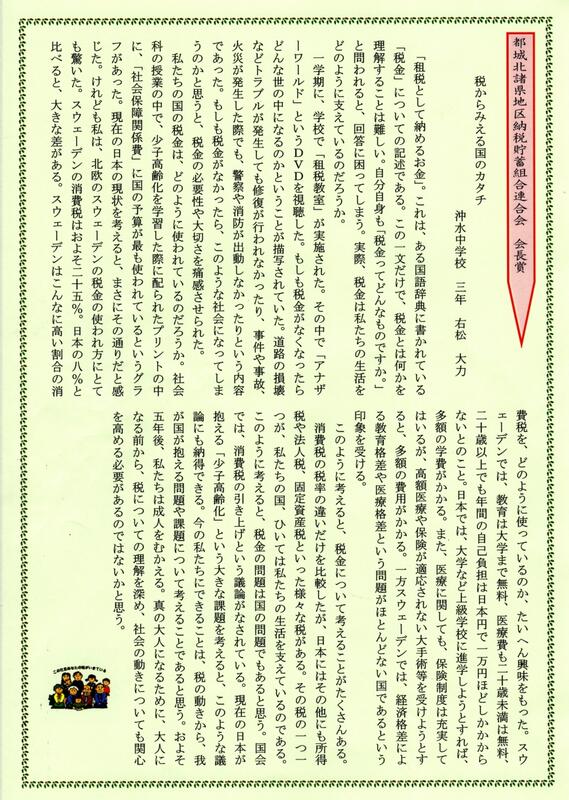 都城北諸県地区納税貯蓄組合連合会　会長賞
税からみえる国のカタチ
沖水中学校　三年　右松　大力
「租税として納めるお金」。これは、ある国語辞典に書かれている
「税金」についての記述である。この一文だけで、税金とは何かを
理解することは難しい。自分自身も「税金ってどんなものですか。」
と問われると、回答に困ってしまう。実際、税金は私たちの生活を
どのように支えているのだろうか。
一学期に、学校で「租税教室」が実施された。その中で「アナザ
ーワールド」というDVDを視聴した。もしも税金がなくなったら
どんな世の中になるのかということが描写されていた。道路の損壊
などトラブルが発生しても修復が行われなかったり、事件や事故、
火災が発生した際でも、警察や消防が出動しなかったりという内容
であった。もしも税金がなかったら、このような社会になってしま
うのかと思うと、税金の必要性や大切さを痛感させられた。
私たちの国の税金は、どのように使われているのだろうか。社会
科の授業の中で、少子高齢化を学習した際に配られたプリントの中
に、「社会保障関係費」に国の予算が最も使われているというグラ
フがあった。現在の日本の現状を考えると、まさにその通りだと感
じた。けれども私は、北欧のスウェーデンの税金の使われ方にとて
も驚いた。スウェーデンの消費税はおよそ二十五%。日本の八%と
比べると、大きな差がある。スウェーデンはこんなに高い割合の消
費税を、どのように使っているのか、たいへん興味をもった。スウ
ェーデンでは、教育は大学まで無料、医療費も二十歳未満は無料、
二十歳以上でも年間の自己負担は日本円で一万円ほどしかかから
ないとのこと。日本では、大学など上級学校に進学しようとすれば、
多額の学費がかかる。また、医療に関しても、保険制度は充実して
はいるが、高額医療や保険が適応されない大手術等を受けようとす
ると、多額の費用がかかる。一方スウェーデンでは、経済格差によ
る教育格差や医療格差という問題がほとんどない国であるという
印象を受ける。
このように考えると、税金について考えることがたくさんある。
消費税の税率の違いだけを比較したが、日本にはその他にも所得
税や法人税、固定資産税といった様々な税がある。その税の一つ一
つが、私たちの国、ひいては私たちの生活を支えているのである。
このように考えると、税金の問題は国の問題でもあると思う。国会
では、消費税の引き上げという議論がなされている。現在の日本が
抱える「少子高齢化」という大きな課題を考えると、このような議
論にも納得できる。今の私たちにできることは、税の動きから、我
が国が抱える問題や課題について考えることであると思う。およそ
五年後、私たちは成人をむかえる。真の大人になるために、大人に
なる前から、税についての理解を深め、社会の動きについても関心
を高める必要があるのではないかと思う。
この社会あなたの税がいきている